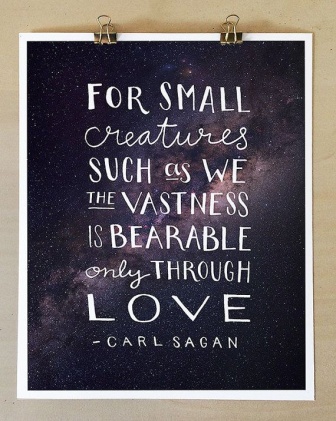 FOR SMALL
creatures
SUCH as WE
THE VASTNESS
IS BEARABLE
only THROUGH
LOVE
-CARL SAGAN